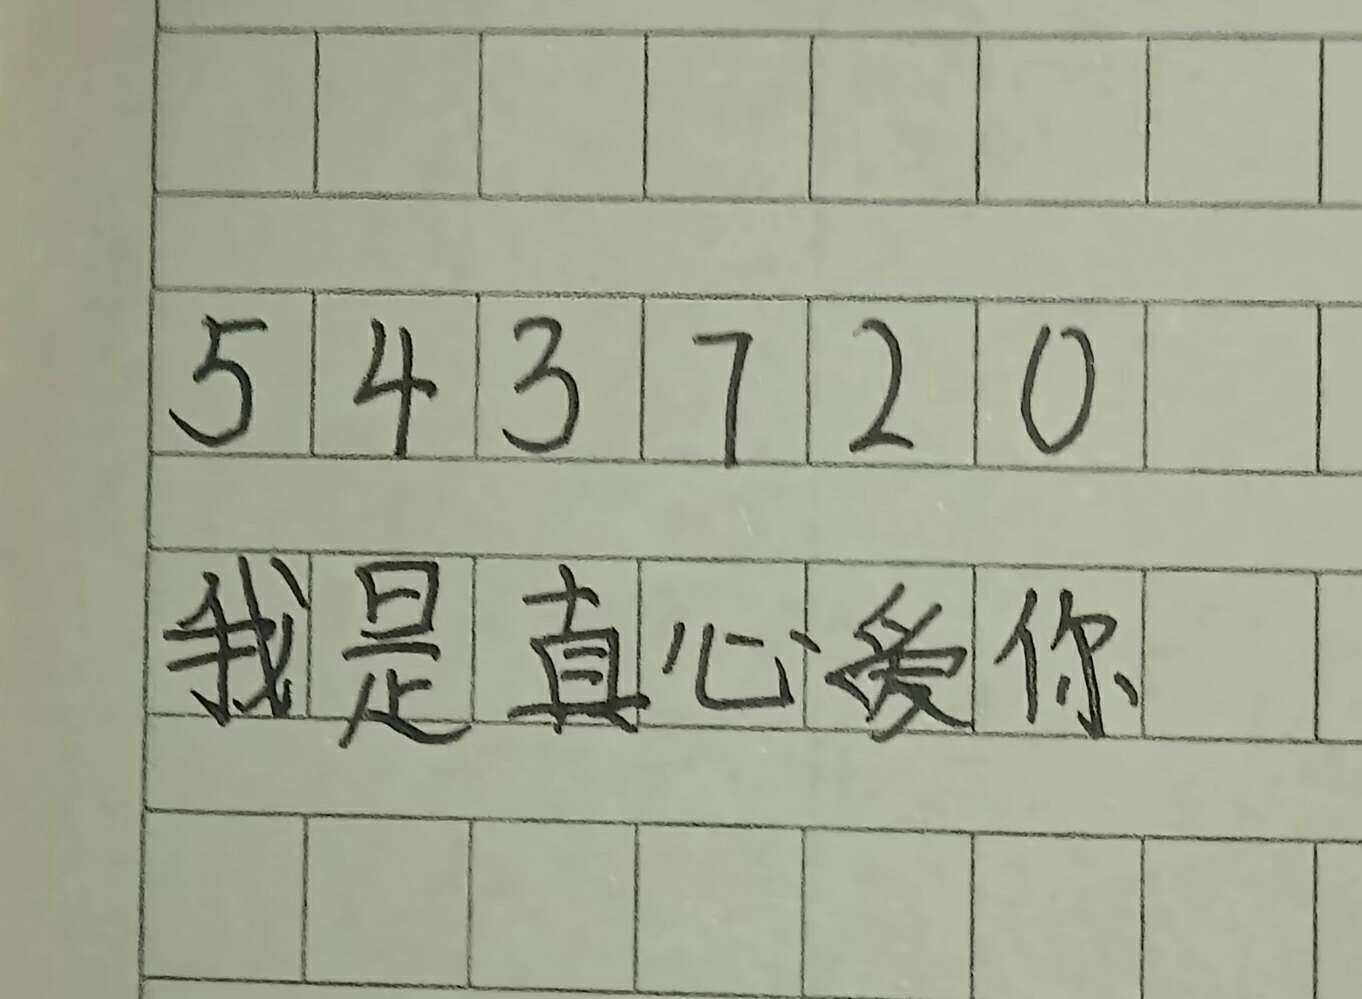 543720
我是真心爱你